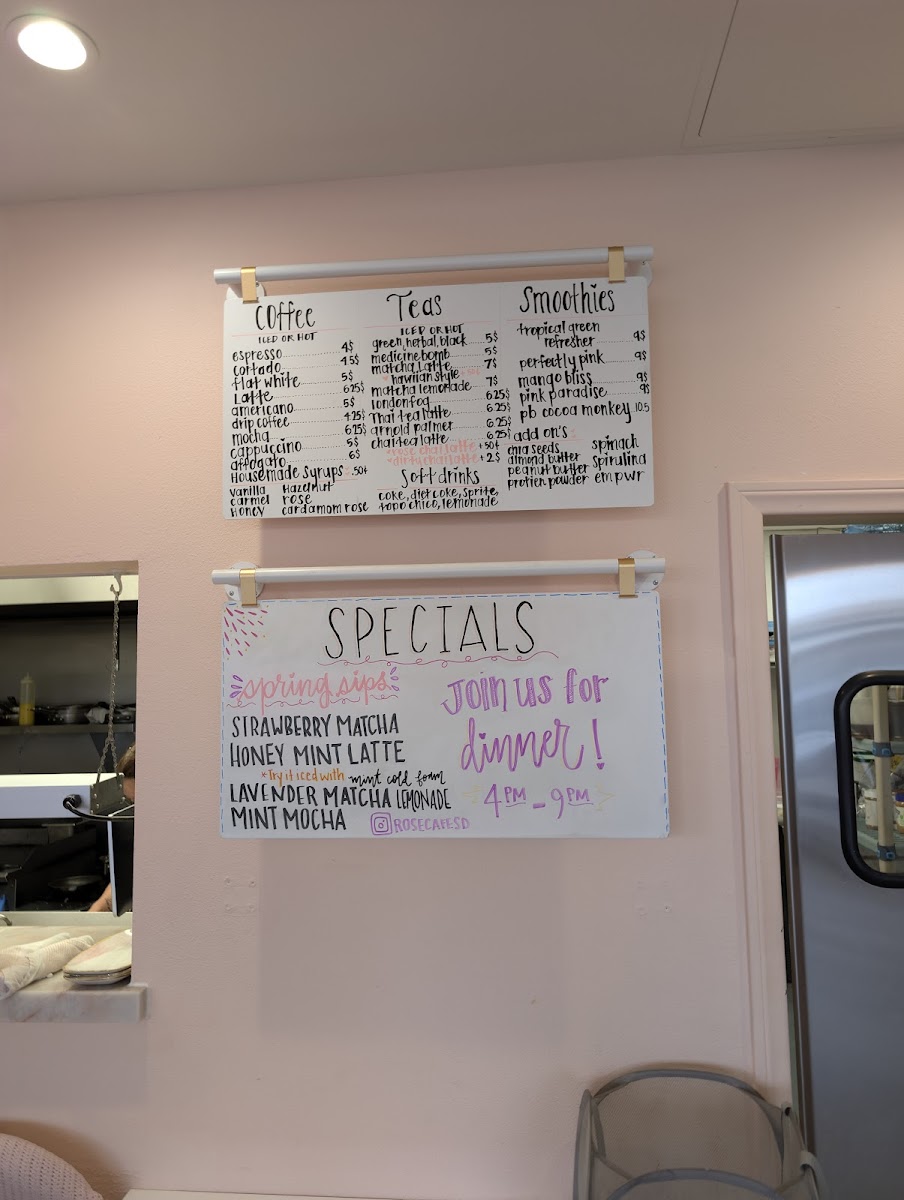 Coffee
ICED OR HOT
espresso 4$
cortado 4.5$
flat white 5$
Latte 6.25$
americano 5$
drip coffee 4.25$
mocha 6.25$
cappuccino 5$
affogato 6$
Housemade syrups .50¢
vanilla Hazelnut
carmel rose
Honey cardamom rose
Teas
ICED OR HOT
green, herbal, black 5$
medicine bomb 5$
matcha Latte 7$
hawiian style
matcha lemonade 7$
london fog 6.25$
Thai tea latte 6.25$
arnold palmer 6.25$
chai tea latte 6.25$
*rose chai latte +50¢
*dirty chai latte +2$
Soft drinks
coke, diet coke, Sprite,
topo chico, lemonade
Smoothies
tropical green
refresher 9$
perfectly pink 9$
mango bliss 9$
pink paradise 9$
pb cocoa monkey 10.5
add on's
chia seeds spinach
almond butter spirulina
peanut butter empwr
protien powder
SPECIALS
spring sips
STRAWBERRY MATCHA
HONEY MINT LATTE
*Try it iced with mint cold foam
LAVENDER MATCHA LEMONADE
MINT MOCHA
ROSECAFESD
Join us for
dinner!
4PM - 9PM